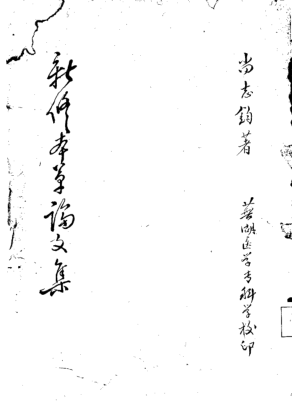 尚志钧著
芜湖医学专科学校印
新修本草論文集